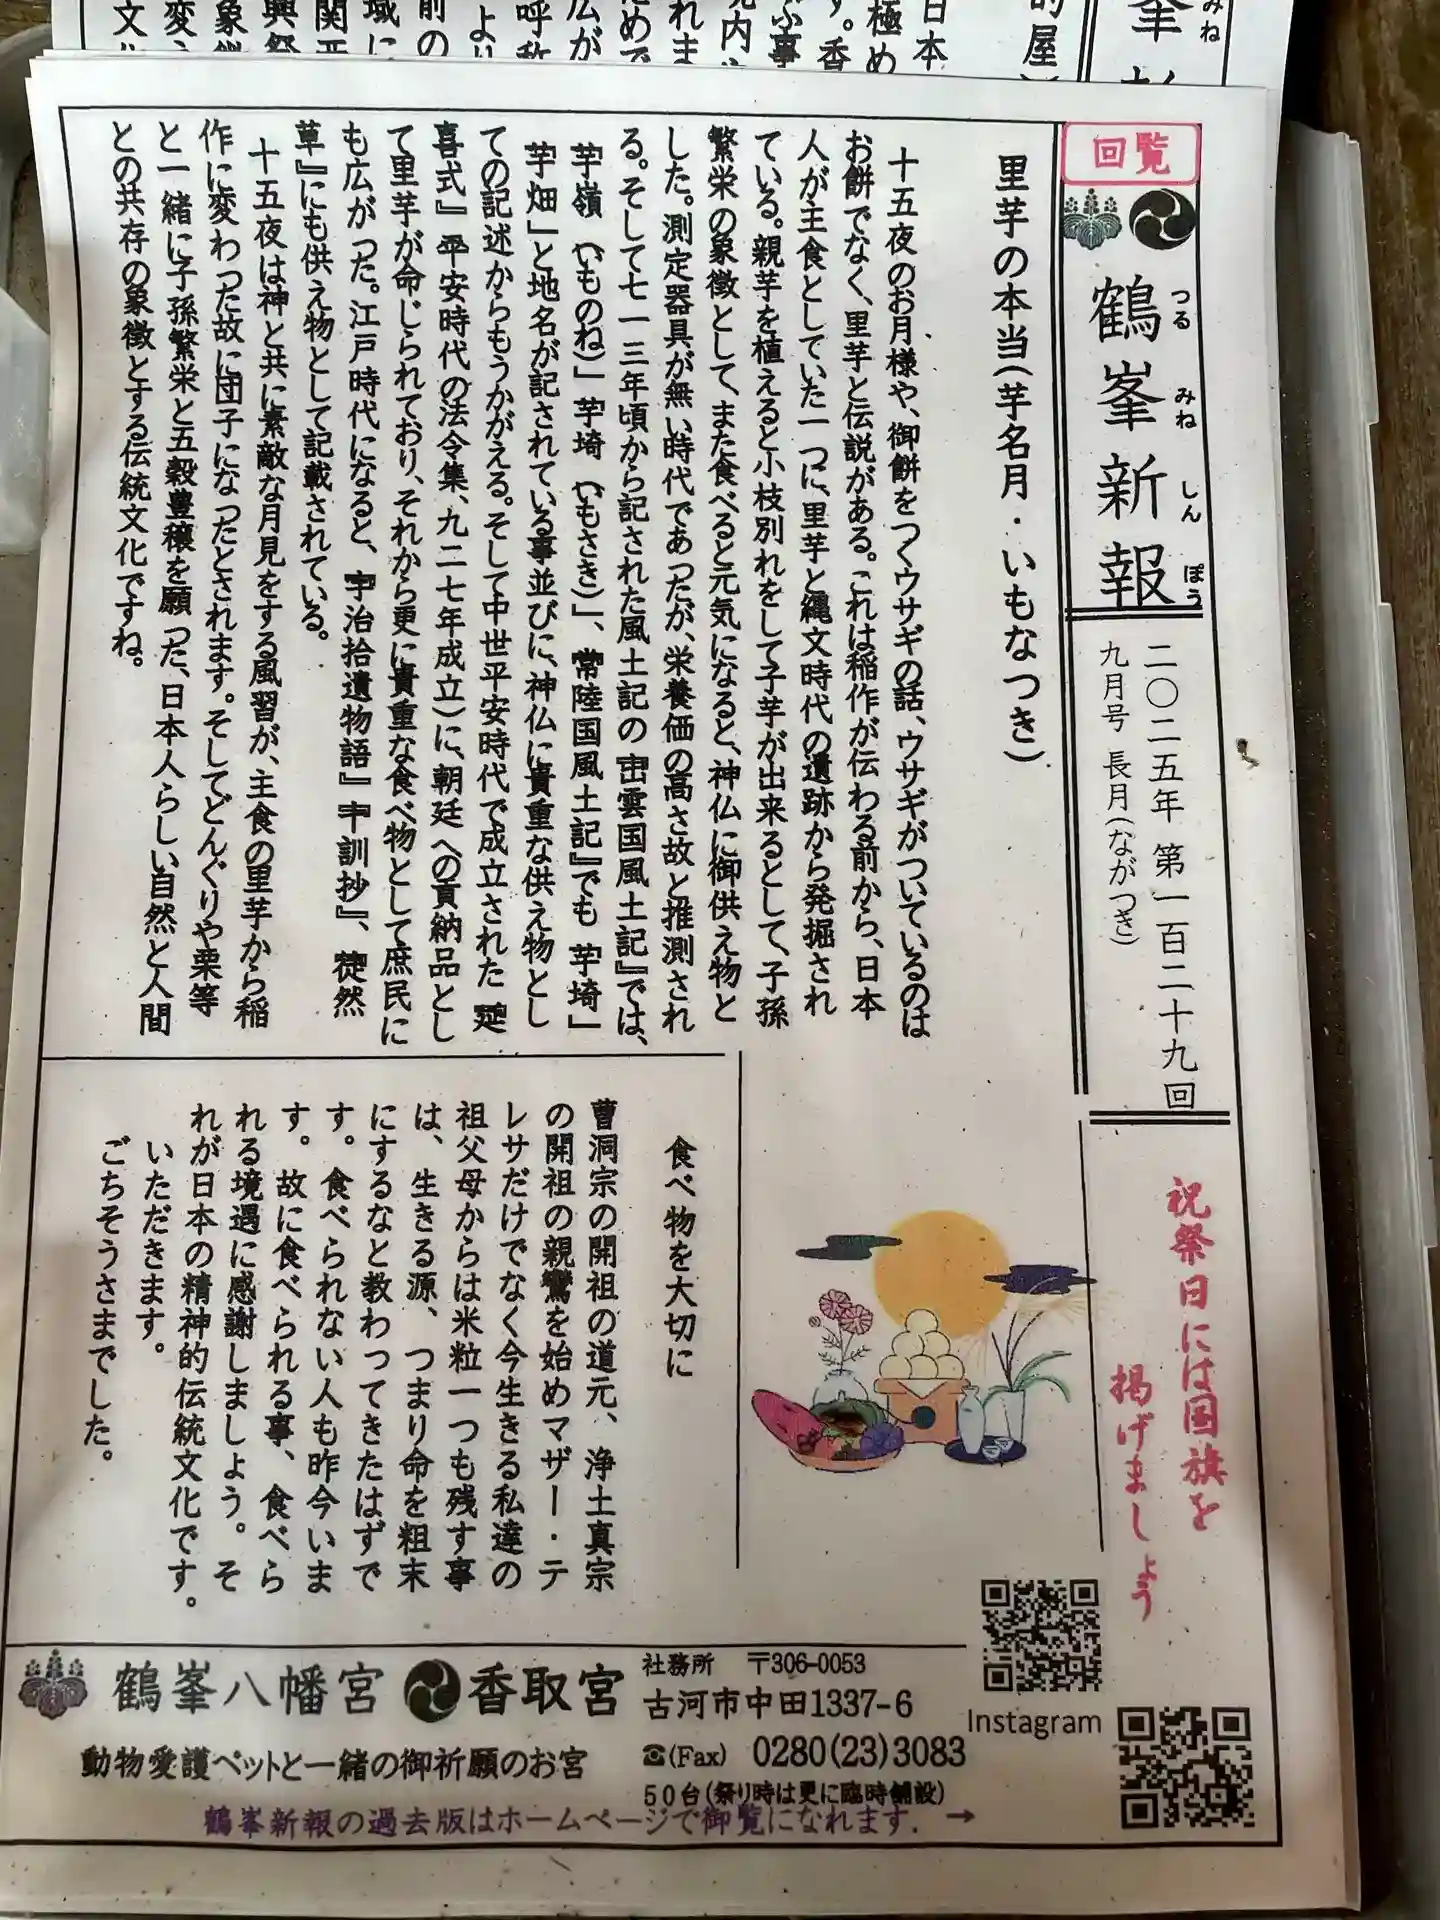 回覧
鶴峯新報
つる みね しん ぽう
二〇二五年 第一百二十九回
九月号 長月(ながつき)
祝祭日には国旗を
掲げましょう
里芋の本当(芋名月・いもなつき)
十五夜のお月様や、御餅をつくウサギの話、ウサギがついているのは
お餅でなく、里芋と伝説がある。これは稲作が伝わる前から、日本
人が主食としていた一つに、里芋と縄文時代の遺跡から発掘され
ている。親芋を植えると小枝別れをして子芋が出来るとして、子孫
繁栄の象徴として、また食べると元気になると、神仏に御供え物と
した。測定器具が無い時代であったが、栄養価の高さ故と推測され
る。そして七一三年頃から記された風土記の『出雲国風土記』では、
「芋嶺(いものね)」「芋埼(いもさき)」、『常陸国風土記』でも「芋埼」
「芋畑」と地名が記されている事並びに、神仏に貴重な供え物とし
ての記述からもうかがえる。そして中世平安時代で成立された『延
喜式』『平安時代の法令集、九二七年成立)に、朝廷への貢納品とし
て里芋が命じられており、それから更に貴重な食べ物として庶民に
も広がった。江戸時代になると、『宇治拾遺物語』『十訓抄』、『徒然
草』にも供え物として記載されている。
十五夜は神と共に素敵な月見をする風習が、主食の里芋から稲
作に変わった故に団子になったとされます。そしてどんぐりや栗等
と一緒に子孫繁栄と五穀豊穣を願った、日本人らしい自然と人間
との共存の象徴とする伝統文化ですね。
食べ物を大切に
曹洞宗の開祖の道元、浄土真宗
の開祖の親鸞を始めマザー・テ
レサだけでなく今生きる私達の
祖父母からは米粒一つも残す事
は、生きる源、つまり命を粗末
にするなと教わってきたはずで
す。食べられない人も昨今いま
す。故に食べられる事、食べら
れる境遇に感謝しましょう。そ
れが日本の精神的伝統文化です。
いただきます。
ごちそうさまでした。
鶴峯八幡宮 香取宮
動物愛護ペットと一緒の御祈願のお宮
社務所 〒306-0053
古河市中田1337-6
☎(Fax) 0280(23)3083
50台(祭り時は更に臨時舗設)
Instagram
鶴峯新報の過去版はホームページで御覧になれます. →